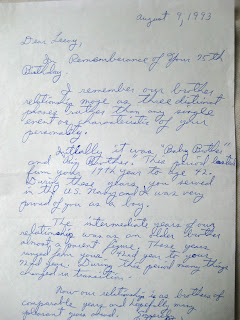 August 9, 1993
Dear Leevy,
In Rememberance of Your 75th
Birthday.
I remember our brother
relationship more as three distinct
phases rather than any single
event or characteristic of your
personality.
Initially it was "Baby Brother"
and "Big Brother." This period lasted
from your 17th year to age 42.
During these years, you served
in the U.S. Navy and I was very
proud of you as a boy.
The intermediate years of our
relationship was as an older brother
almost a parent figure. These years
ranged from your 42nd year to your
72nd year. During this period many things
changed in transition.
Now our relationship is as brothers of
comparable years and hopefully many
pleasant years ahead.